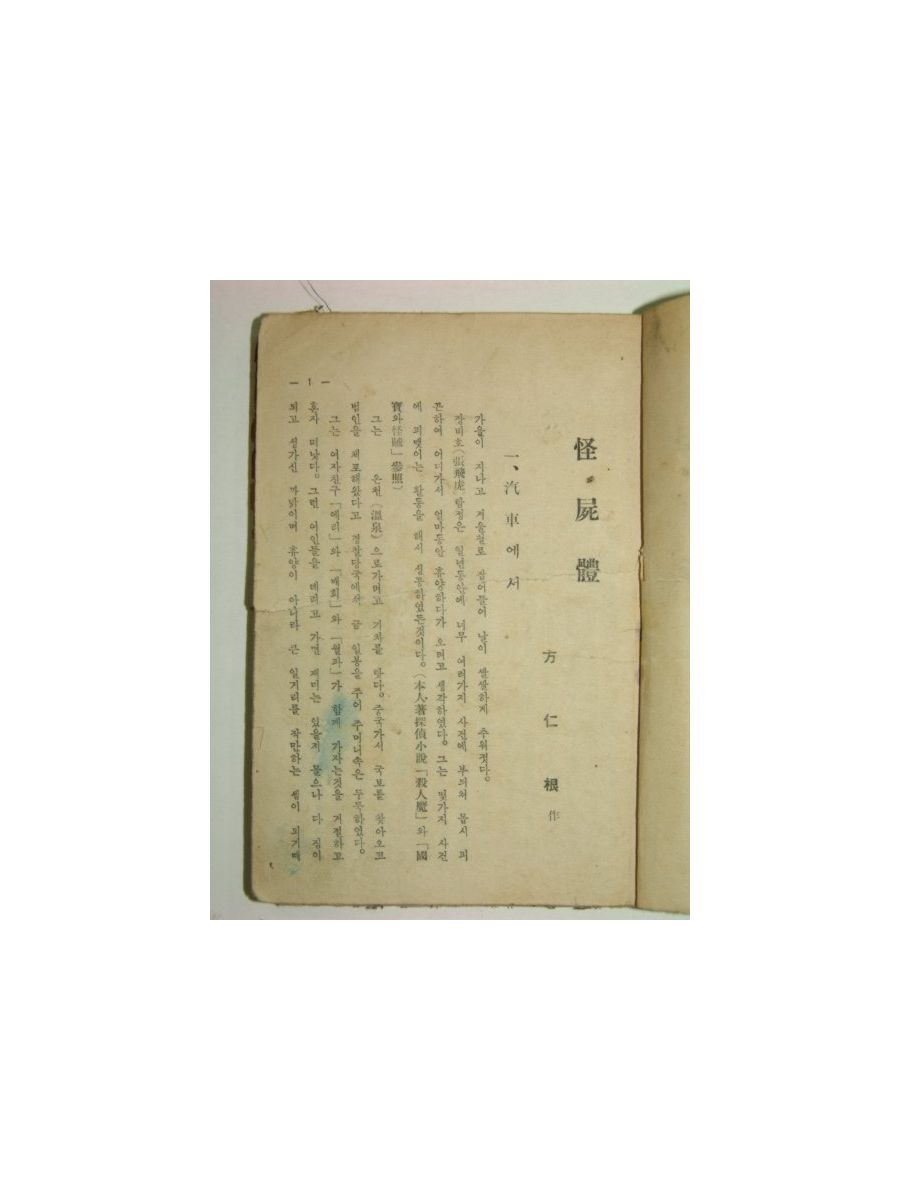 怪屍體
方仁根作
一、汽車에서
가을이 지나고 겨울절로 잡어들어 날이 쌀쌀하게 추워젓다.
장비호(張飛虎)탐정은 일년동안에 너무 여러가지 사건에 부듸처 몹시 피
곤하여 어디가서 얼마동안 휴양하다가 오려고 생각하였다。 그는 몇가지 사건
에 피맺이는 활동을 해서 성공하였든것이다。(本人著探偵小說「殺人魔」와 「國
寶와怪賊」參照)
그는 온천(溫泉)으로가며고 기차를 탓다。 중국가서 국보를 찾아오고
범인을 체포해왔다고 경찰당국에서 금 일봉을 주어 주머니속은 두둑하였다。
그는 여자친구 「에리」와 「매희」와 「월파」가 함께 가자는것을 거절하고
혼자 떠낫다。 그런 여인들을 데리고 가면 재미는 있을지 몰으나 다 짐이
되고 성가신 까닭이며 휴양이 아니라 큰 일거리를 작만하는 셈이 되기때
— 1 —